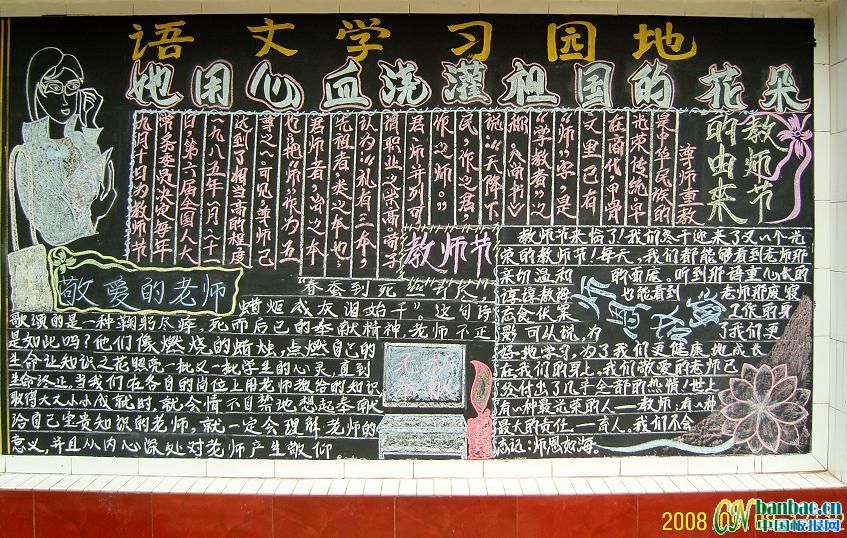 语文学习园地
她用心血浇灌祖国的花朵
教师节
的由来
尊师重教
是中华民族的
光荣传统。早
在商代,甲骨
文里已有
“师”字,是
“学教者”之
称。《尚书》
说:“天降下
民,作之君,
作之师。”
君师并列可
谓职业之崇高。荀子
认为:“礼有三本,
先祖者,类之本也,
君师者,治之本
也,把“师”作为五
等之一。可见,尊师已
达到了相当高的程度
一九八五年一月二十一
日,第六届全国人大
常委会决定每年
九月十日为教师节
敬爱的老师
“春蚕到死丝方尽,
蜡炬成灰泪始干”。这句诗
歌颂的是一种鞠躬尽瘁,死而后已的奉献精神,老师不正
是如此吗?他们像燃烧的蜡烛,点燃自己的
生命让知识之花照亮一批又一批学生的心灵,直到
生命终止,当我们在各自的岗位上用老师教给的知识
取得大大小小成就时,就会情不自禁地想起奉献
给自己宝贵知识的老师,就一定会理解老师的
意义,并且从内心深处对老师产生敬仰
无私
奉献
教师节
教师节来临了!我们终于迎来了又一个光
荣的教师节!每天,我们都能够看到老师那
亲切温和的面庞。听到那语重心长的
谆谆教诲也能看到老师那废寝
忘食伏案工作的身
影可以说,为了我们更
好地学习,为了我们更健康地成长
在我们的身上,我们敬爱的老师已
经付出了几乎全部的热情!世上
有一种最光荣的人——教师,有一种
最大的责任——育人,我们不会
忘记:师恩如海。
2008
banbao.cn
中国板报网